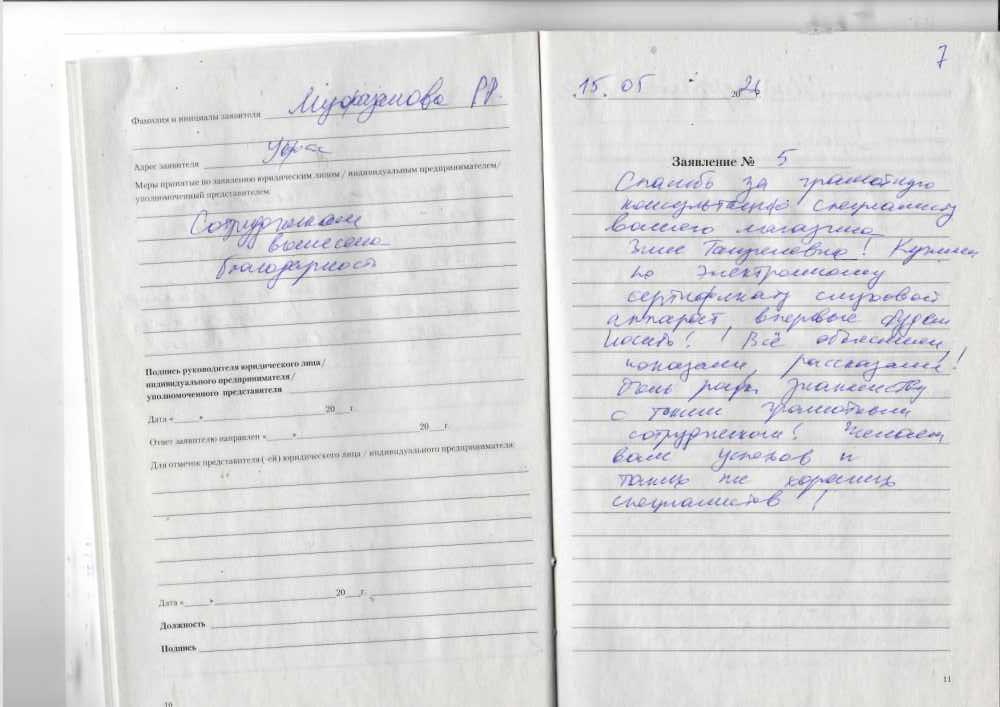 Фамилия и инициалы заявителя
Адрес заявителя Уфа
Меры принятые по заявлению юридическим лицом / индивидуальным предпринимателем/
уполномоченный представителем
Сотрудникам
вынесена
благодарность
Подпись руководителя юридического лица/
индивидуального предпринимателя/
уполномоченного представителя
Дата «____» 20__г.
Ответ заявителю направлен «____» 20__г.
Для отметок представителя (-ей) юридического лица / индивидуального предпринимателя:
Дата «____» 20__г.
Должность
Подпись
10
7
15. 05 20 г.
Заявление № 5
Спасибо за грамотную
консультацию специалисту
вашего магазина
Зине! Купили
по электронному
сертификату слуховой
аппарат, впервые будем
носить! Всё объяснили,
показали, рассказали!
рады знакомству
с таким грамотным
сотрудником! Желаем
вам успехов и
таких же хороших
специалистов!
11